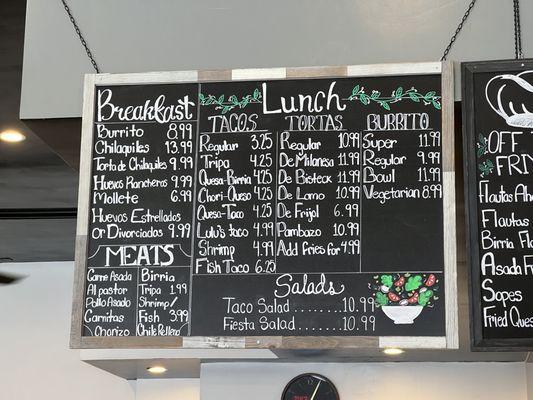 Breakfast
Burrito 8.99
Chilaquiles 13.99
Torta de Chilaquiles 9.99
Huevos Rancheros 9.99
Mollete 6.99
Huevos Estrellados
or Divorciados 9.99
MEATS
Carne Asada
Al pastor
Pollo Asado
Carnitas
Chorizo
Birria
Tripa 1.99
Shrimp/
Fish 3.99
Chile Relleno
Lunch
TACOS
Regular 3.25
Tripa 4.25
Quesa-Birria 4.25
Chori-Queso 4.25
Quesa-Taco 4.25
Lulu's taco 4.99
Shrimp 4.99
Fish Taco 6.25
TORTAS
Regular 10.99
De Milanesa 11.99
De Bisteck 11.99
De Lomo 10.99
De Frijol 6.99
Pambazo 10.99
Add fries for 4.99
BURRITO
Super 11.99
Regular 9.99
Bowl 11.99
Vegetarian 8.99
Salads
Taco Salad ........ 10.99
Fiesta Salad ....... 10.99
OFF
FRI
Flauta
Flautas
Birria
Asada
Sopes
Fried